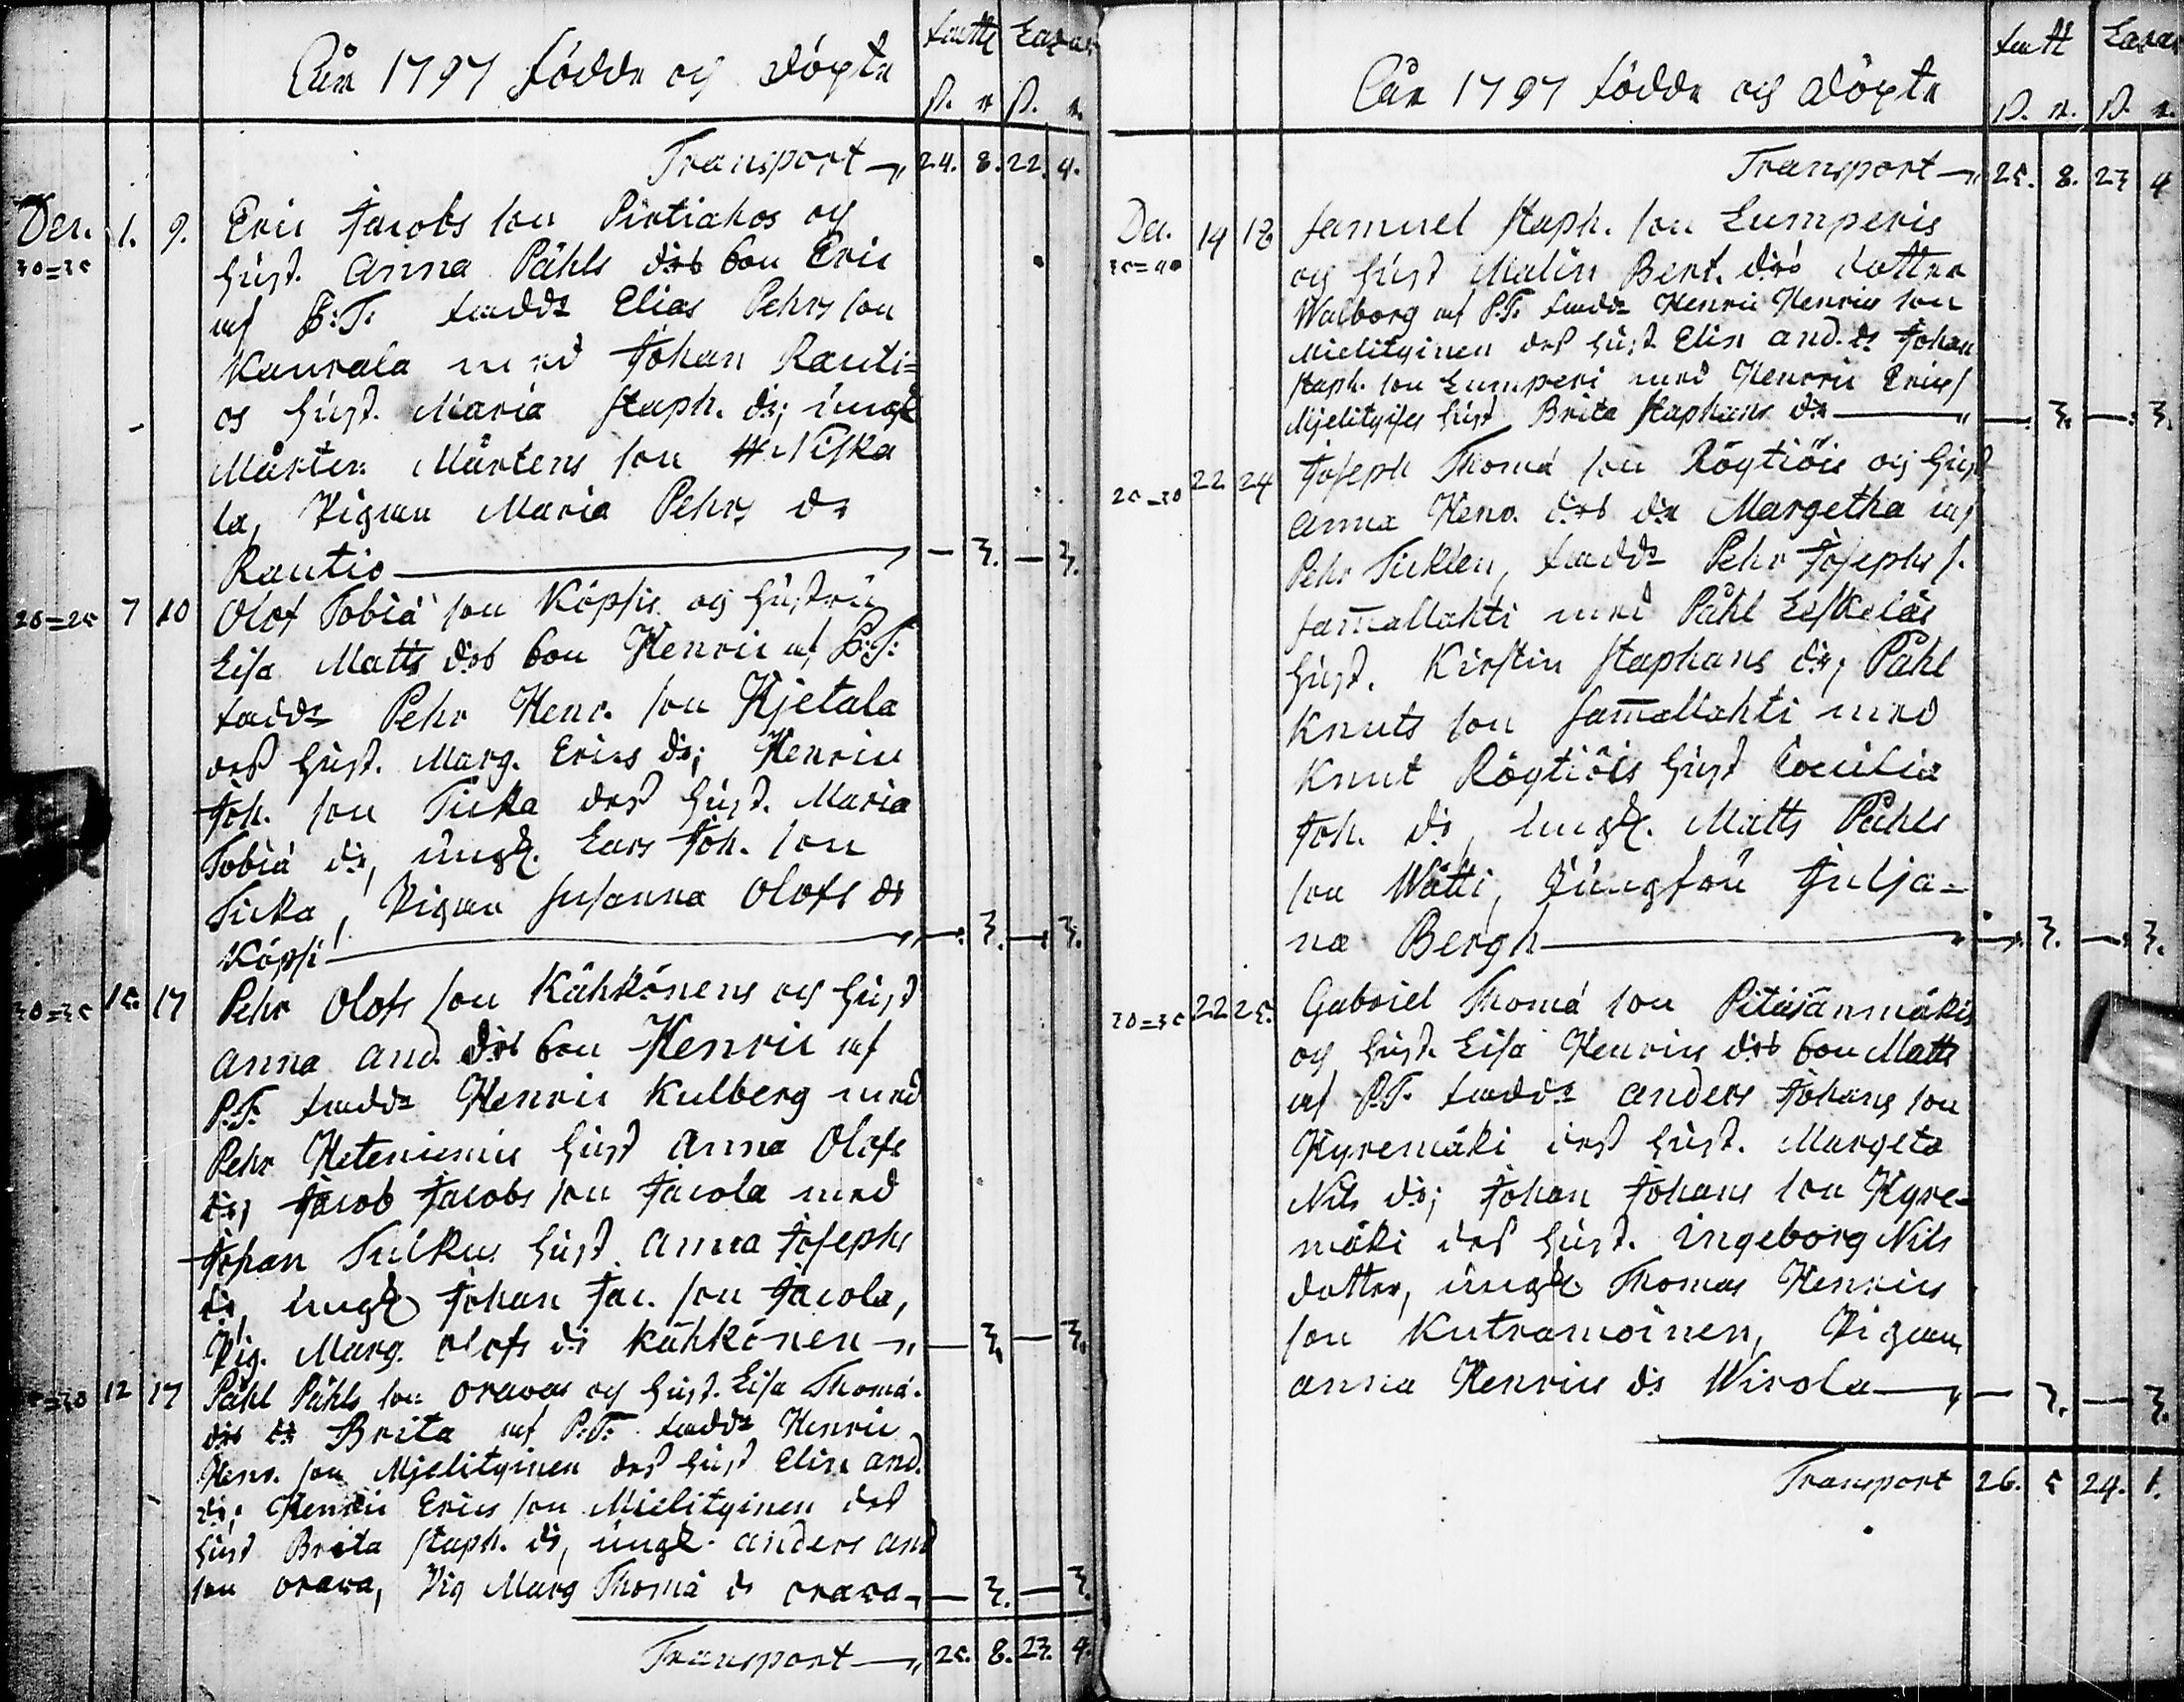 fatt Lazar
Åhr 1797 födde och döpte
ß. r. ß. r.
Transport 24. 8. 22. 4.
Dec. 1. 9. Eric Jacobs son Pirtiahos och
30=35 hust. Anna Påhls drs son Eric
af P:T: fadd. Elias Pehrs son
Kaurala med Johan Rauti=
os hust. Maria Staph. dr; ungk
Mårten Mårtens son Niska
la, Pigan Maria Pehrs dr
Rautio — 3. — 3.
20=25 7 10 Olof Tobiæ son Köpsis och hustru
Lisa Matts drs son Henric af P:T:
fadd. Pehr Henr. son Hjetala
dess hust. Marg. Erics dr; Henric
Joh. son Ticka dess hust. Maria
Tobiæ dr, ungk. Lars Joh. son
Ticka, Pigan Susanna Olofs dr
Köpsi — 3. — 3.
30=35 15. 17 Pehr Olofs son Kähkönens och hust
Anna And. drs son Henric af
P.T. fadd. Henric Kulberg med
Pehr Heteniemis hust Anna Olofs
dr, Jacob Jacobs son Jacola med
Johan Tulkus hust. Anna Josephs
dr, ungk Johan Jac. son Jacola,
Pig. Marg. Olofs dr Kähkönen — 3. — 3.
12 17 Påhl Påhls son Oravas och hust. Lisa Thomæ
drs dr Brita af P:T: fadd. Henric
Henr. son Mjelityinen dess hust Elin And.
dr; Henric Erics son Mielityinen dess
hust Brita Staph. dr, ungk. Anders And
son Orava, Pig Marg Thomæ dr Orava — 3. — 3.
Transport 25. 8. 23. 4.
fatt Lazar
Åhr 1797 födde och döpte
ß. r. ß. r.
Transport 25. 8. 23 4
Dec. 14 18 Samuel Staph. son Lumperis
35=40 och hust Malin Bert. drs dotter
Walborg af P.T. fadd. Henric Henrics son
Mielityinen dess hust Elin And. dr Johan
Staph. son Lumperi med Henric Erics
Mjelityises hust Brita Staphans dr — 3. — 3.
25=30 22 24 Joseph Thomæ son Röytiöis och hust
Anna Henr. drs dr Margetha af
Pehr Ticklen, fadd. Pehr Josephs s.
Sam̄allahti med Påhl Leskeläs
hust. Kirstin Staphans dr, Påhl
Knuts son Sam̄allahti med
Knut Röytiöis hust Cecilia
Joh. dr, ungk. Matts Påhls
son Wätti, Jungfru Julja=
na Bergh — 3. — 3.
30=35 22 25. Gabriel Thomæ son Pitäjänmäkis
och hust. Lisa Henrics drs son Matts
af P.T. fadd. Anders Johans son
Hyremäki dess hust. Margeta
Nils dr; Johan Johans son Hyre=
mäki dess hust. Ingeborg Nils
dotter, ungk. Thomas Henrics
son Kutramoinen, Pigan
Anna Henrics dr Wirola — 3. — 3.
Transport 26. 5 24. 1.